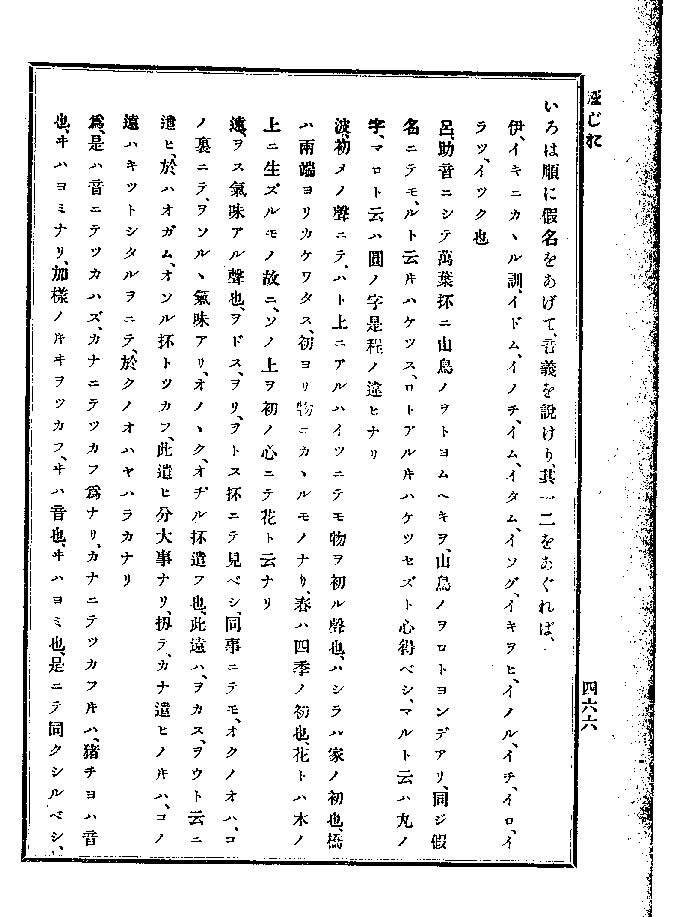 いろは順に假名をあげて、言義を說けり、其一二をあぐれば、
伊、イキニカヽル訓、イドム、イノチ、イム、イタム、イソグ、イキヲヒ、イノル、イチ、イロ、イ
ラツ、イツク也
呂、助音ニシテ萬葉抔ニ山鳥ノヲトヨムヘキヲ、山鳥ノヲロトヨンデアリ、同ジ假
名ニテモ、ルト云片ハケツス、ロトアル片ハケツセズト心得ベシ、マルト云ハ丸ノ
字、マロト云ハ圓ノ字是程ノ違ヒナリ
波、初メノ聲ニテ、ハト上ニアルハイツニテモ物ヲ初ル聲也、ハシラハ家ノ初也、橋
ハ兩端ヨリカケワタス、初ヨリ物ニカヽルモノナリ、春ハ四季ノ初也、花トハ木ノ
上ニ生ズルモノ故ニ、ソノ上ヲ初ノ心ニテ花ト云ナリ
遠、ヲス氣味アル聲也、ヲドス、ヲリ、ヲトス抔ニテ見ベシ、同事ニテモ、オクノオハ、コ
ノ裏ニテ、ヲソルヽ氣味アリ、オノヽク、オヂル抔遣フ也、此遠ハ、ヲカス、ヲウト云ニ
遣ヒ、於ハオガム、オソル抔トツカフ、此遣ヒ分大事ナリ、扨テ、カナ遣ヒノ片ハ、コノ
遠ハキツトシタルヲニテ、於クノオハヤハラカナリ
爲、是ハ音ニテツカハズ、カナニテツカフ爲ナリ、カナニテツカフ片ハ、猪チヨハ音
也、ヰハヨミナリ、加樣ノ片ヰヲツカフ、ヰハ音也、ヰハヨミ也、是ニテ同クシルベシ、
四六六